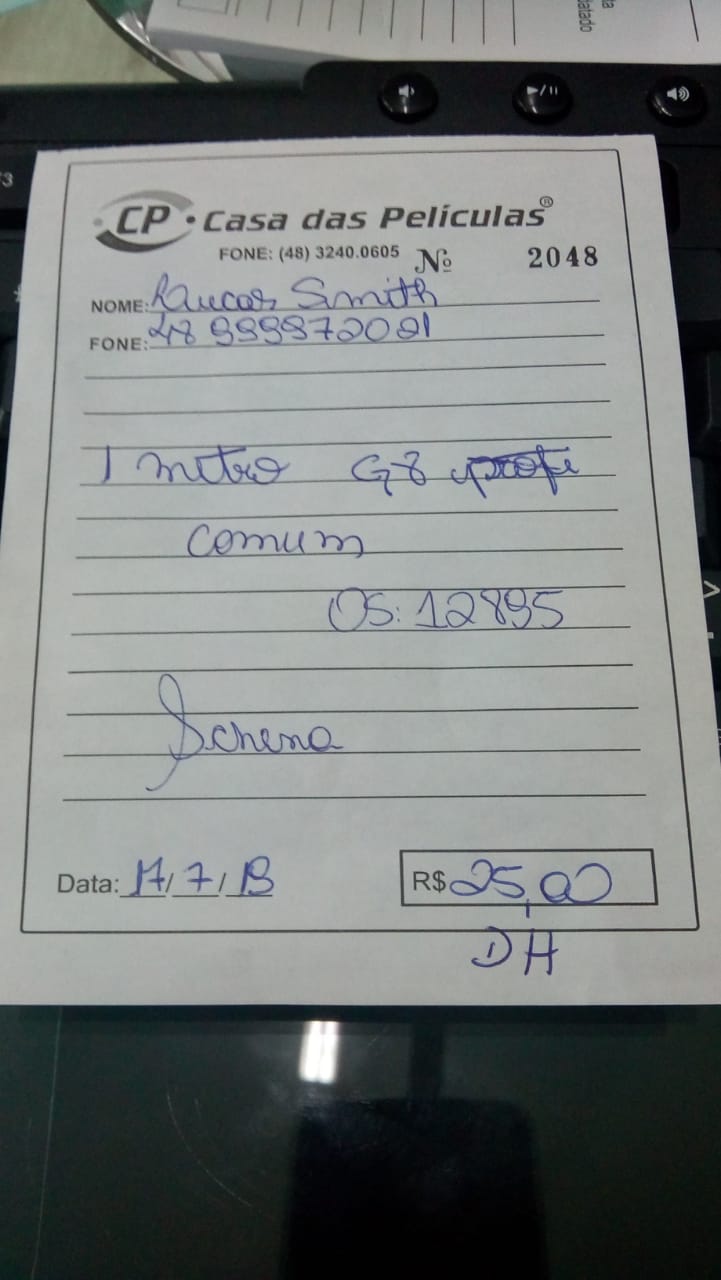 ta
datado
F3
CP • Casa das Películas®
FONE: (48) 3240.0605 Nº 2048
NOME: Smith
FONE: 48 999972021
1 metro G8
comum
OS: 12895
Schena
Data: 17/7/
R$ 25,00
DH